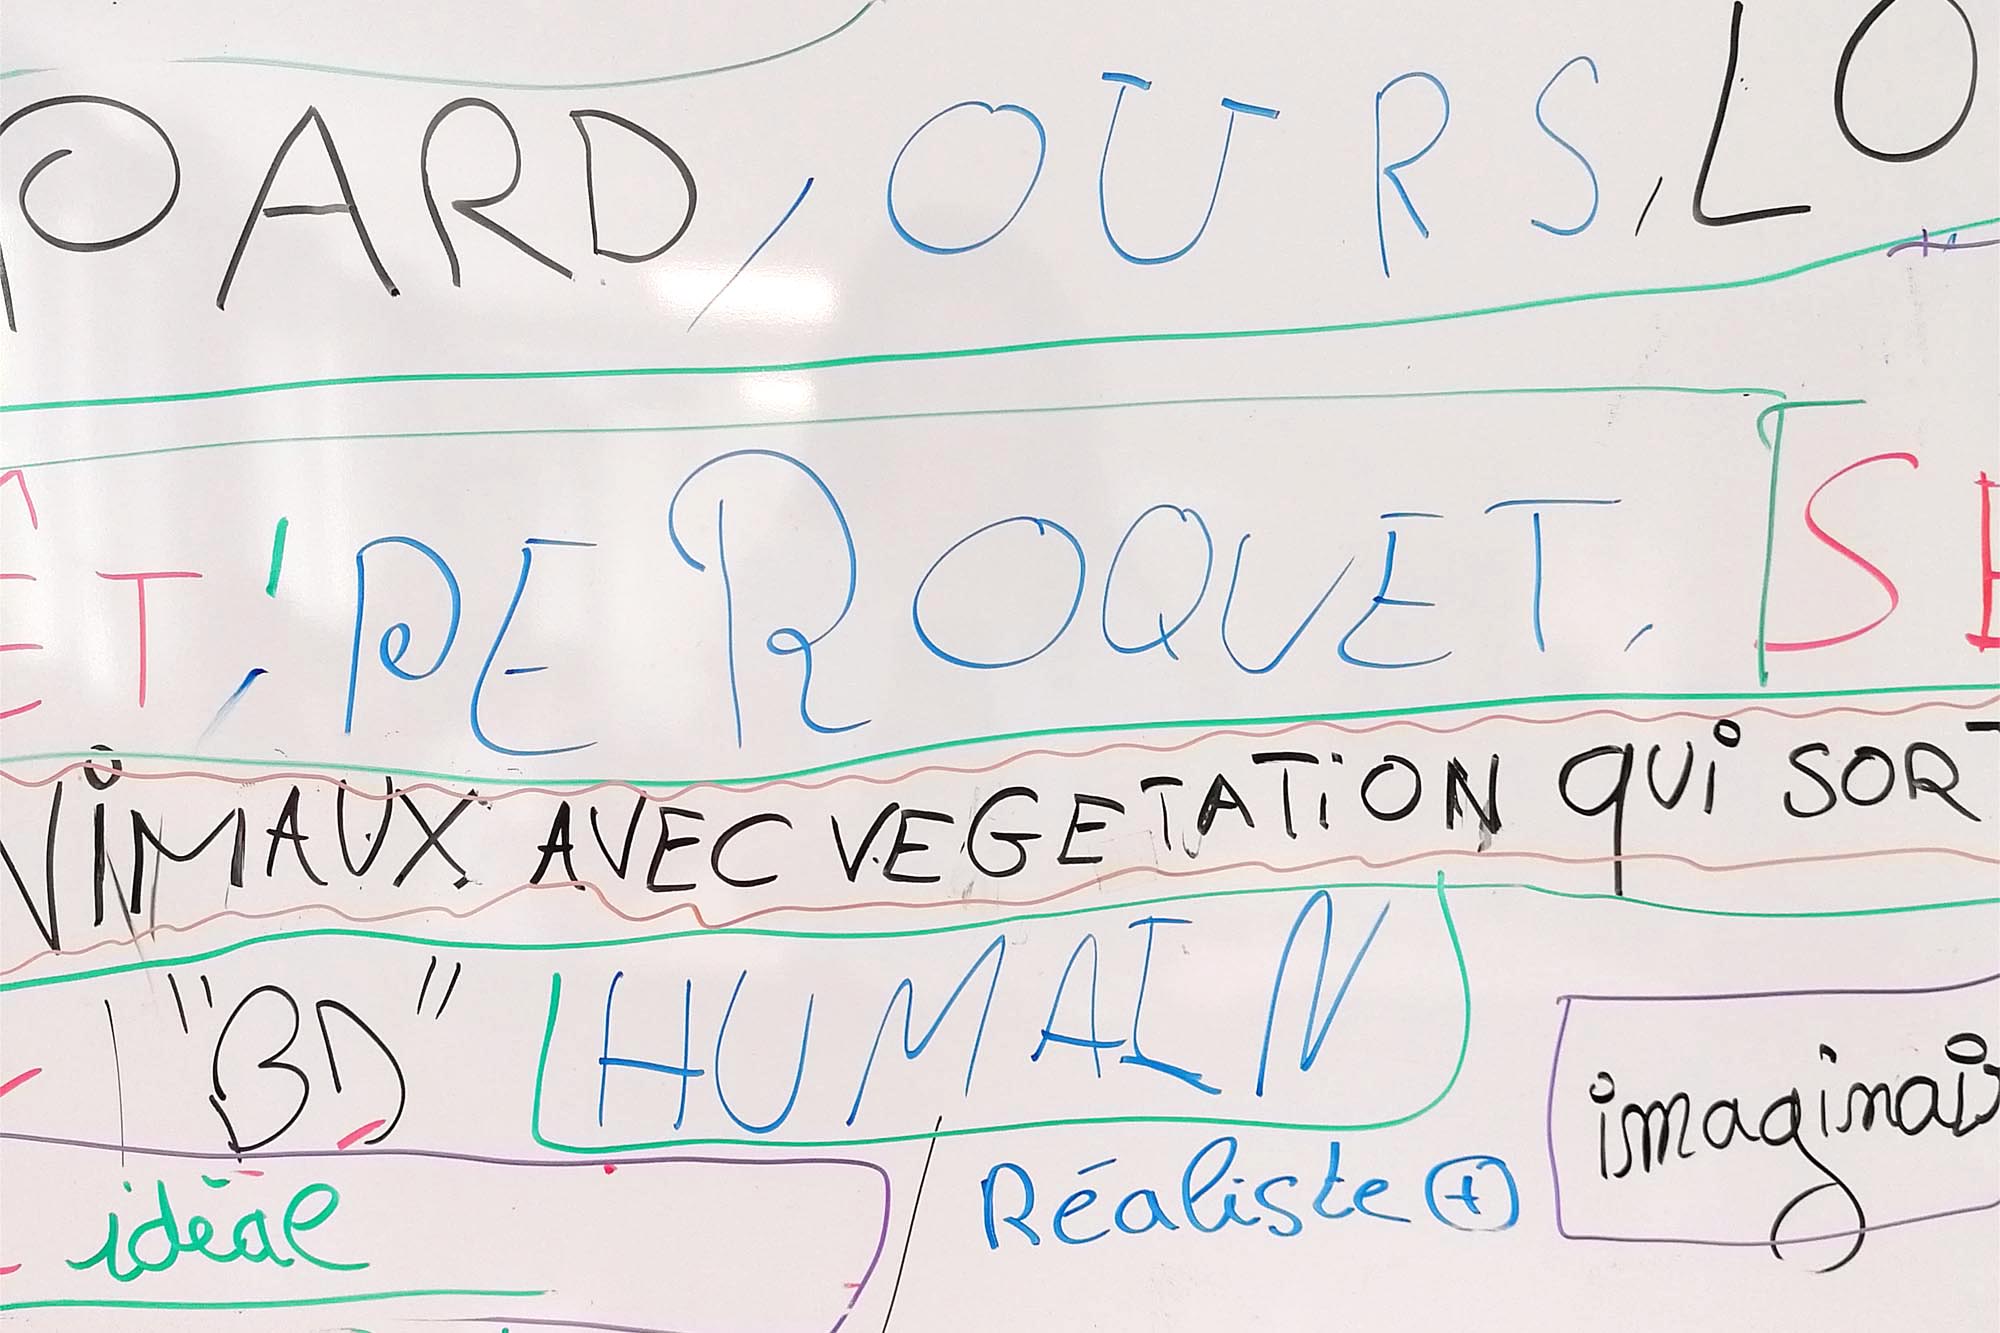 PARD, OURS, LO
ET, PERROQUET, SE
NIMAUX AVEC VEGETATION QUI SORT
"BD" HUMAIN
idéal Réaliste + imaginai